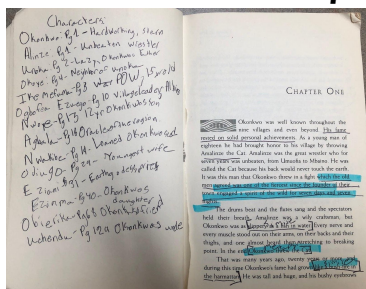 Characters
Okonkwo - Pg 1 - Hardworking, stern
Alinze - Pg 1 - Unbeaten wrestler
Unoka - Pg 2 - Lazy, Okonkwo's Father
Okoye - Pg 4 - Neighbor of Unoka
Ike Mefuna - Pg 8 POW, 15 yr old
Ogbuefi Ezeugo - Pg 10
Nwoye - Pg 13 12 yr Okonkwo's son
Agbala - Pg 16 Oracle of the region
Nwakibie - Pg 19 - Loaned Okonkwo seed
Ojiugo - Pg 29 - Youngest wife
Ezeani - Pg 31 - Earth goddess priest
Ezinma - Pg 40 - Okonkwo's
daughter
Obierika - Pg 68 Okonkwo's friend
Uchendu - Pg 129 Okonkwo's uncle
CHAPTER ONE
Okonkwo was well known throughout the
nine villages and even beyond. His fame
rested on solid personal achievements. As a young man of
eighteen he had brought honor to his village by throwing
Amalinze the Cat. Amalinze was the great wrestler who for
seven years was unbeaten, from Umuofia to Mbaino. He was
called the Cat because his back would never touch the earth.
It was this man that Okonkwo threw in a fight which the old
men agreed was one of the fiercest since the founder of their
town engaged a spirit of the wild for seven days and seven
nights.
The drums beat and the flutes sang and the spectators
held their breath. Amalinze was a wily craftsman, but
Okonkwo was as slippery as a fish in water. Every nerve and
every muscle stood out on their arms, on their backs and their
thighs, and one almost heard them stretching to breaking
point. In the end Okonkwo threw the Cat.
That was many years ago, twenty years or more, and
during this time Okonkwo's fame had grown like a bush-fire in
the harmattan. He was tall and huge, and his bushy eyebrows